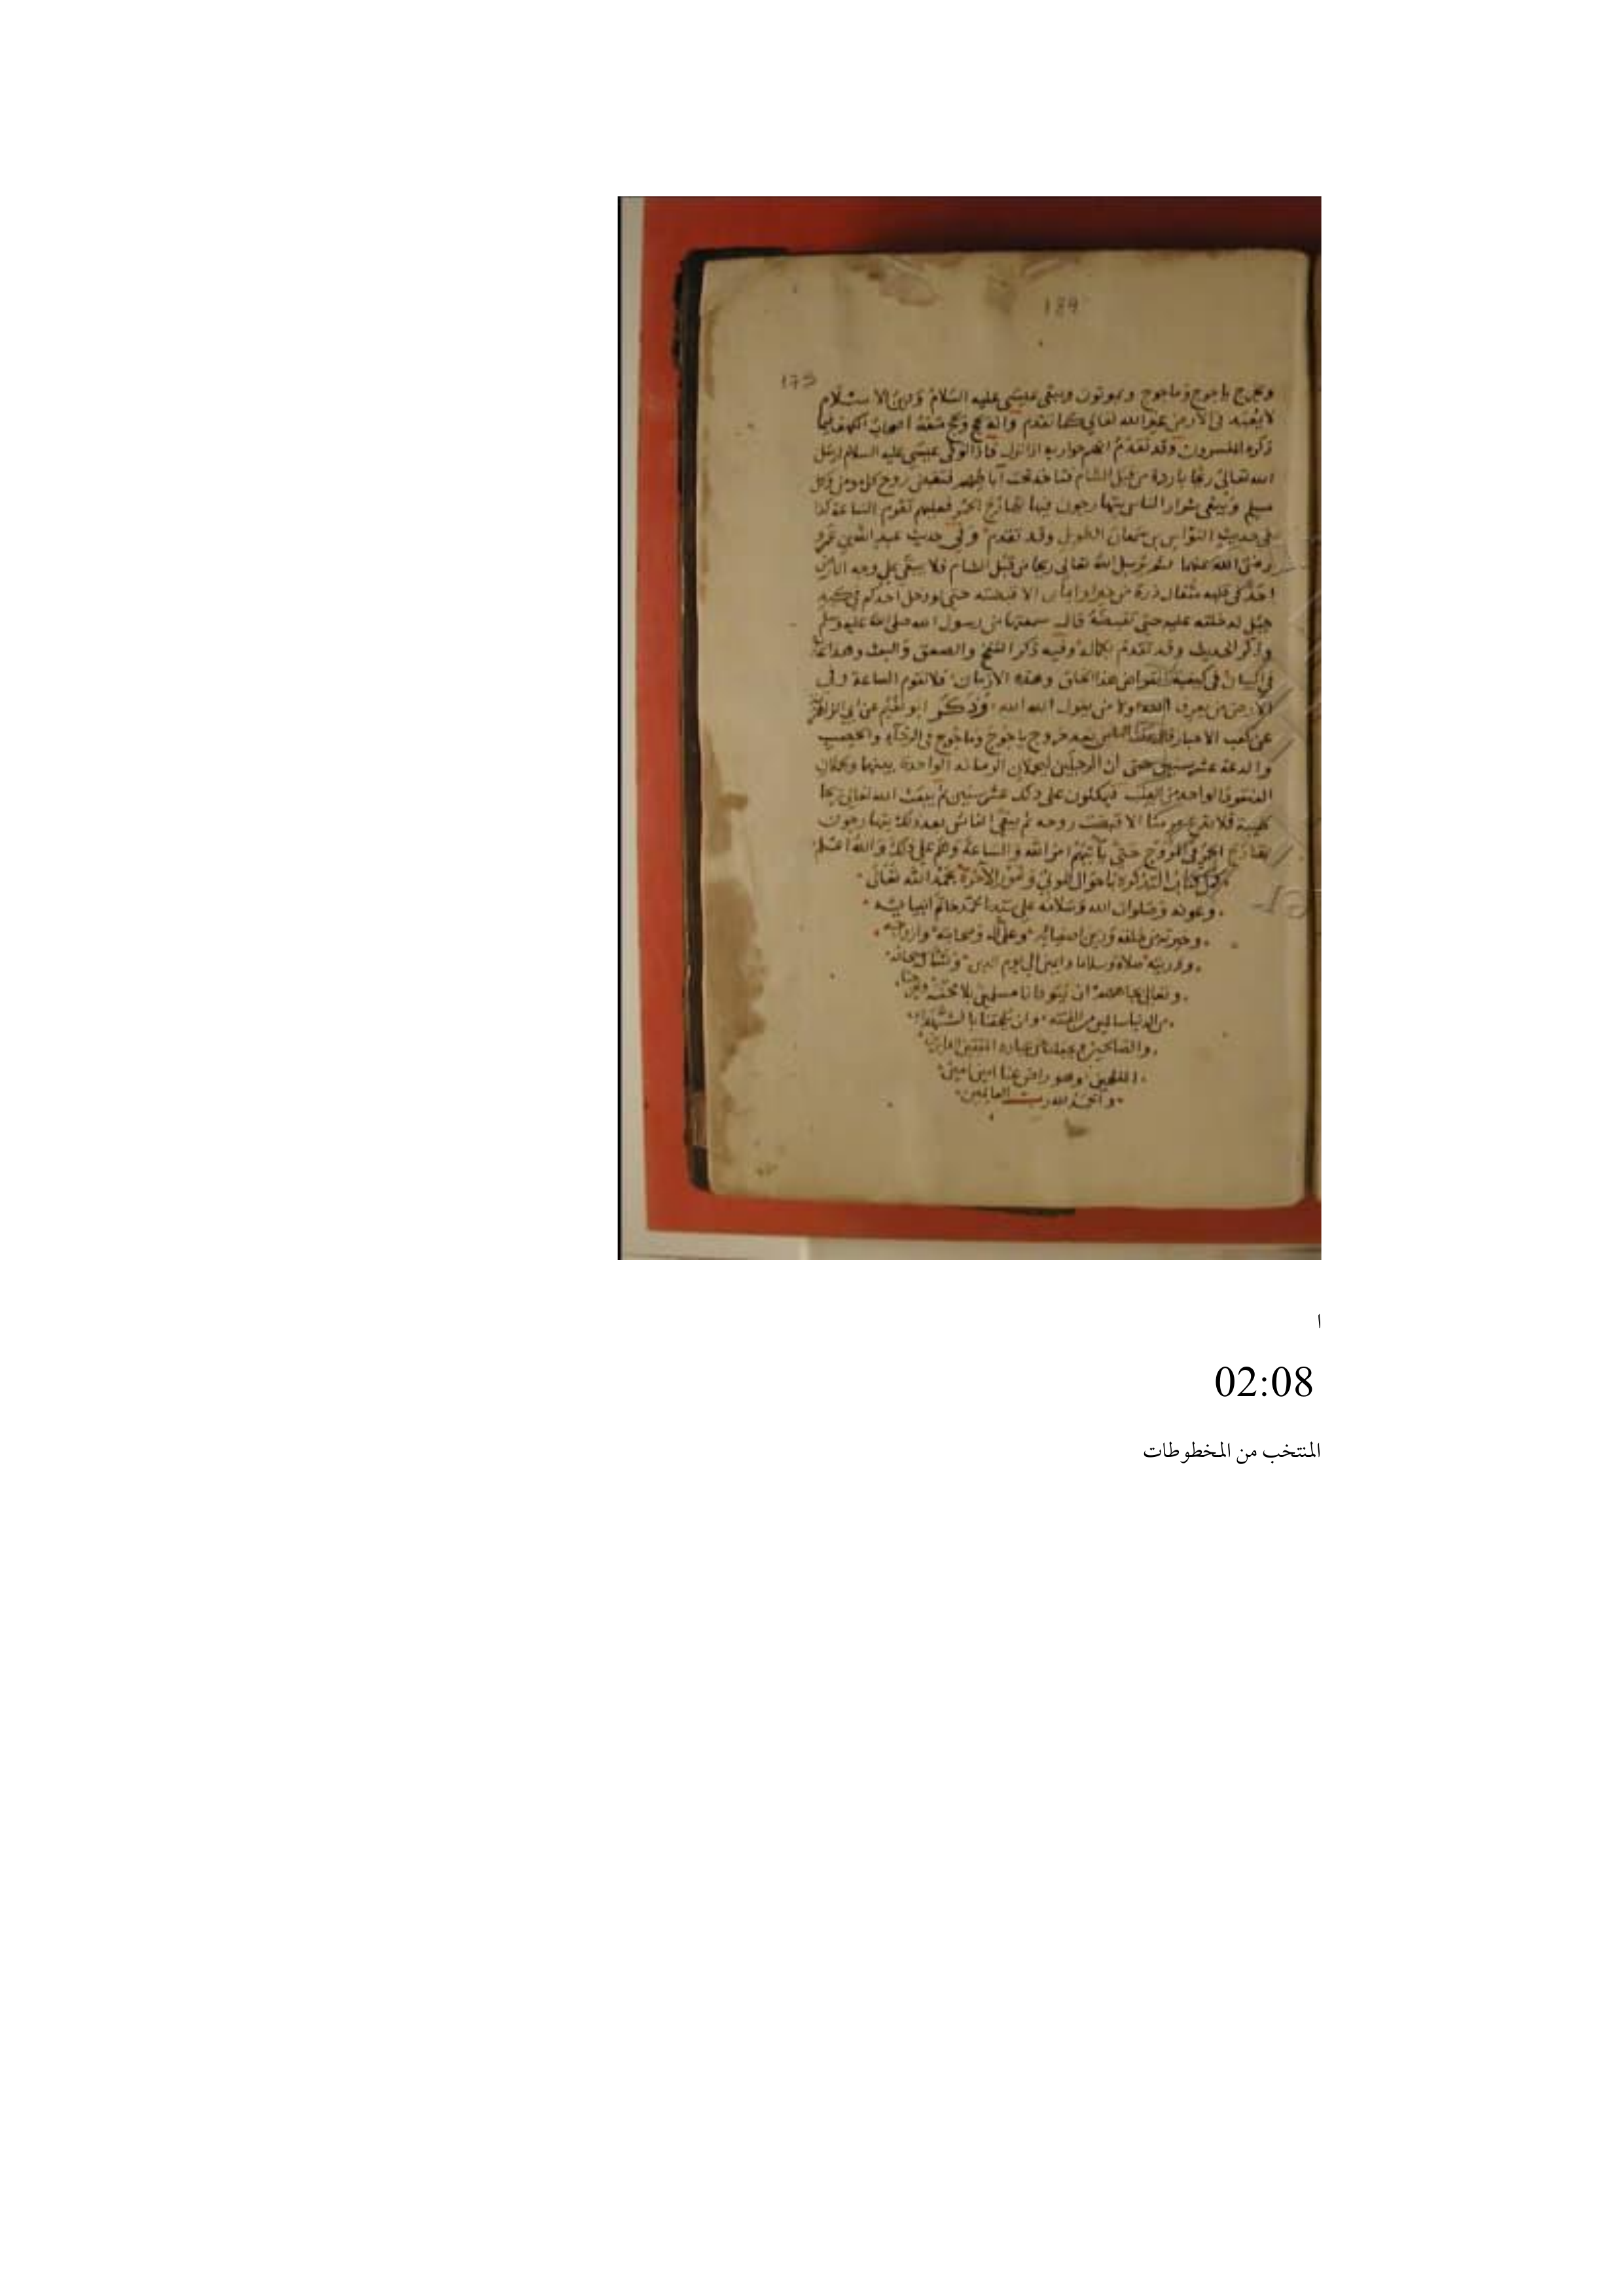 189
175
ويخرج ياجوج وماجوج ويموتون ويبقى عيسى عليه السلام ودين الاسلام
لا يعبد في الارض غير الله تعالى كما تقدم وانه يحج ويحج معه اصحاب الكهف فيما
ذكره المفسرون وقد تقدم انهم حواريه اذا نزل فاذا توفى عيسى عليه السلام ارسل
الله تعالى ريحا باردة من قبل الشام فتاخذ تحت آباطهم فتقبض روح كل مومن وكل
مسلم ويبقى شرار الناس يتهارجون فيها تهارج الحمر فعليهم تقوم الساعة كذا
في حديث النواس بن سمعان الطويل وقد تقدم وفي حديث عبد الله بن عمرو
رضى الله عنهما ثم يرسل الله تعالى ريحا من قبل الشام فلا يبقى على وجه الارض
احد في قلبه مثقال ذرة من خير او ايمان الا قبضته حتى لو دخل احدكم في كبد
جبل لدخلته عليه حتى تقبضه قال سمعتها من رسول الله صلى الله عليه وسلم
وذكر الحديث وقد تقدم بكماله وفيه ذكر النفخ والصعق والبعث وهذا
في البيان في كيفية انقراض هذا الخلق وهذه الازمان فلا تقوم الساعة وفي
الارض من يعرف الله ولا من يقول الله الله وذكر ابو نعيم عن ابي الزاهرية
عن كعب الاحبار قال يمكث الناس بعد خروج ياجوج وماجوج في الرخاء والخصب
والدعة عشر سنين حتى ان الرجلين ليحملان الرمانة الواحدة بينهما ويحملان
العنقود الواحد من العنب فيمكثون على ذلك عشر سنين ثم يبعث الله تعالى ريحا
طيبة فلا تدع مومنا الا قبضت روحه ثم يبقى الناس بعد ذلك يتهارجون
تهارج الحمر في المروج حتى يأتيهم امر الله والساعة وهم على ذلك والله اعلم
كمل كتاب التذكرة باحوال الموتى وامور الآخرة بحمد الله تعالى
وعونه وصلوات الله وسلامه على سيدنا محمد خاتم انبيائه
وخيرته من خلقه وزين اصفيائه وعلى آله وصحابته وازواجه
وذريته صلاة وسلاما دايمين الى يوم الدين ونسال سبحانه
وتعالى بجاههم ان يتوفانا مسلمين بلا محنة
من الدنيا سالمين من الفتنة وان يلحقنا بالشهداء
والصالحين ويجعلنا من عباده المتقين
المفلحين وهو راض عنا امين امين
والحمد لله رب العالمين
ا
02:08
المنتخب من المخطوطات